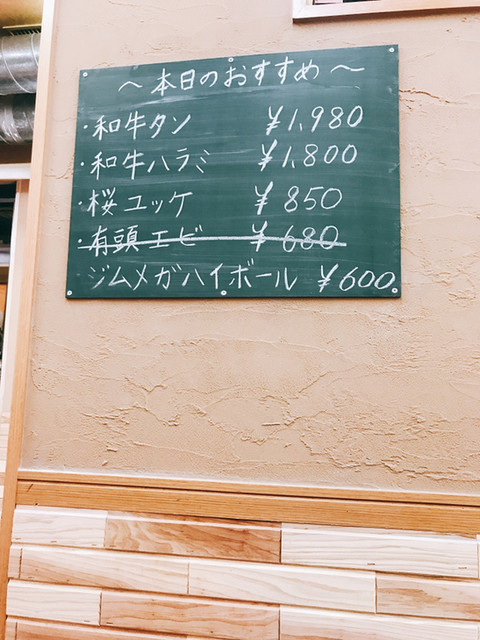 ～本日のおすすめ～
・和牛タン ￥1,980
・和牛ハラミ ￥1,800
・桜ユッケ ￥850
・有頭エビ ￥680
ジムメガハイボール ￥600